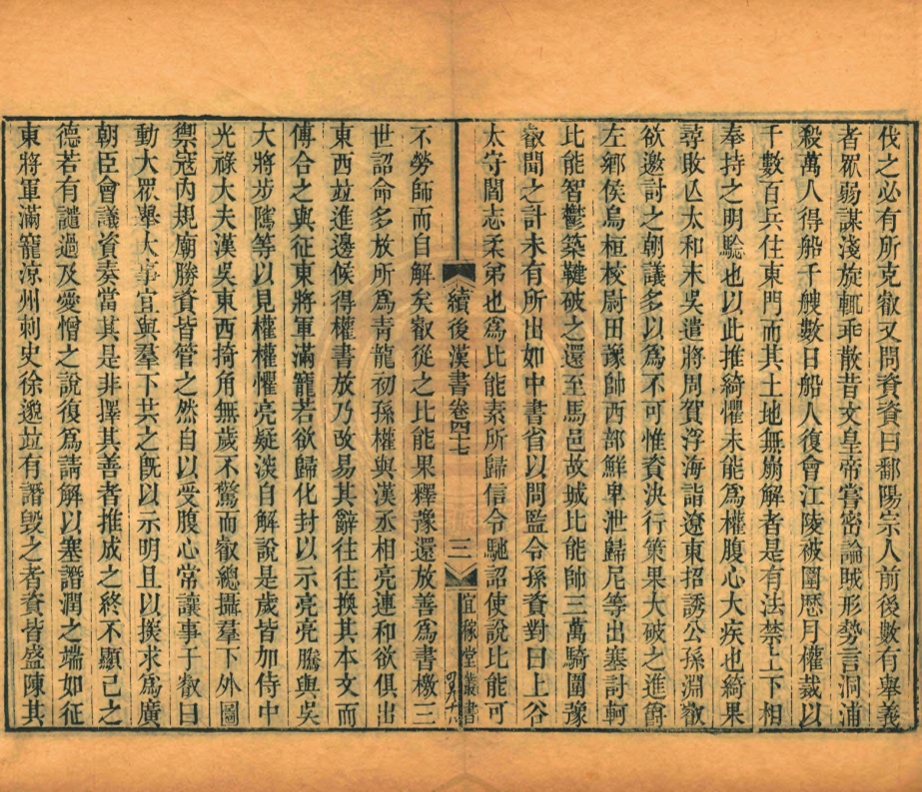 伐之必有所克叡又問資資曰鄱陽宗人前後數有舉義
者眾弱謀淺旋輒乖散昔文皇帝嘗密論賊形勢言洞浦
殺萬人得船千艘數日船人復會江陵被圍歷月權裁以
千數百兵住東門而其土地無崩解者是有法禁上下相
奉持之明驗也以此推綺懼未能為權腹心大疾也綺果
尋敗亾太和末吳遣將周賀浮海詣遼東招誘公孫淵叡
欲邀討之朝議多以為不可惟資決行策果大破之進爵
左鄉侯烏桓校尉田豫帥西部鮮卑泄歸尼等出塞討軻
比能智鬱築鞬破之還至馬邑故城比能帥三萬騎圍豫
叡聞之計未有所出如中書省以問監令孫資對曰上谷
太守閻志柔弟也為比能素所歸信令馳詔使說比能可
續後漢書卷四十七
三
宜稼堂叢書
不勞師而自解矣叡從之比能果釋豫還放善為書檄三
世詔命多放所為青龍初孫權與漢丞相亮連和欲俱出
東西竝進邊候得權書放乃改易其辭往往換其本文而
傅合之與征東將軍滿寵若欲歸化封以示亮亮騰與吳
大將步隲等以見權權懼亮疑淡自解說是歲皆加侍中
光祿大夫漢吳東西掎角無歲不驚而叡總攝羣下外圖
禦寇內規廟勝資皆管之然自以受腹心常讓事于叡曰
動大眾舉大事宜與羣下共之旣以示明且以探求為廣
朝臣會議資奏當其是非擇其善者推成之終不顯己之
德若有譴過及愛憎之說復為請解以塞譖潤之端如征
東將軍滿寵涼州刺史徐邈竝有譖毀之者資皆盛陳其